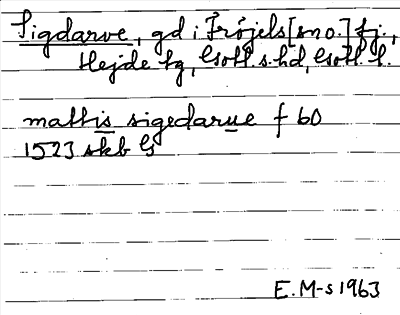 Sigdarve, gd i Fröjels [sno.] fj.,
Hejde tg, Gotl. s. hd, Gotl. l.
mattis sigedarue f 60
1523 skb G
E.M-s 1963